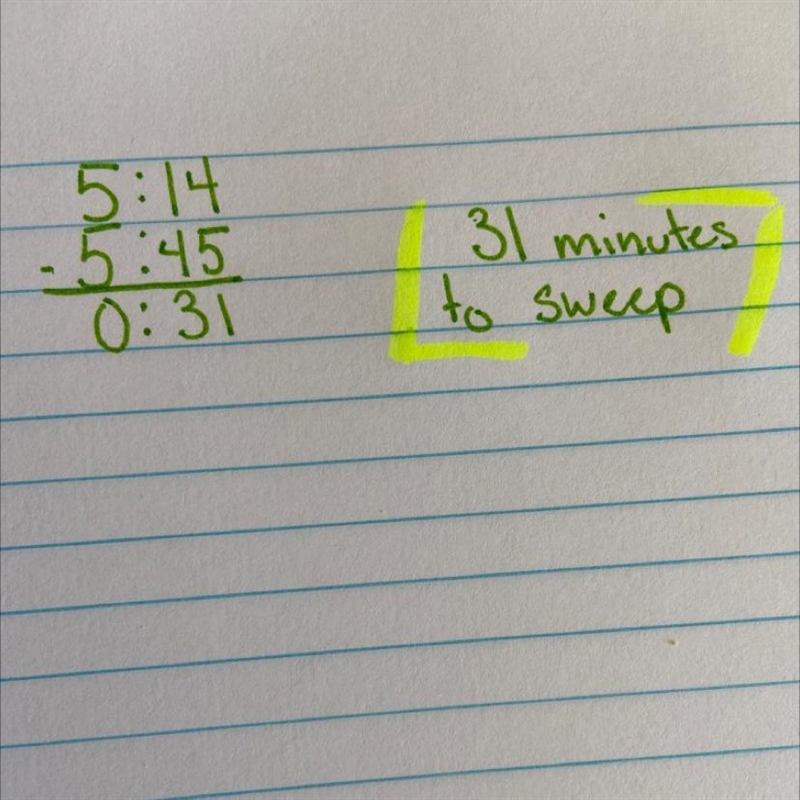 5:14
- 5:45
0:31
31 minutes
to sweep